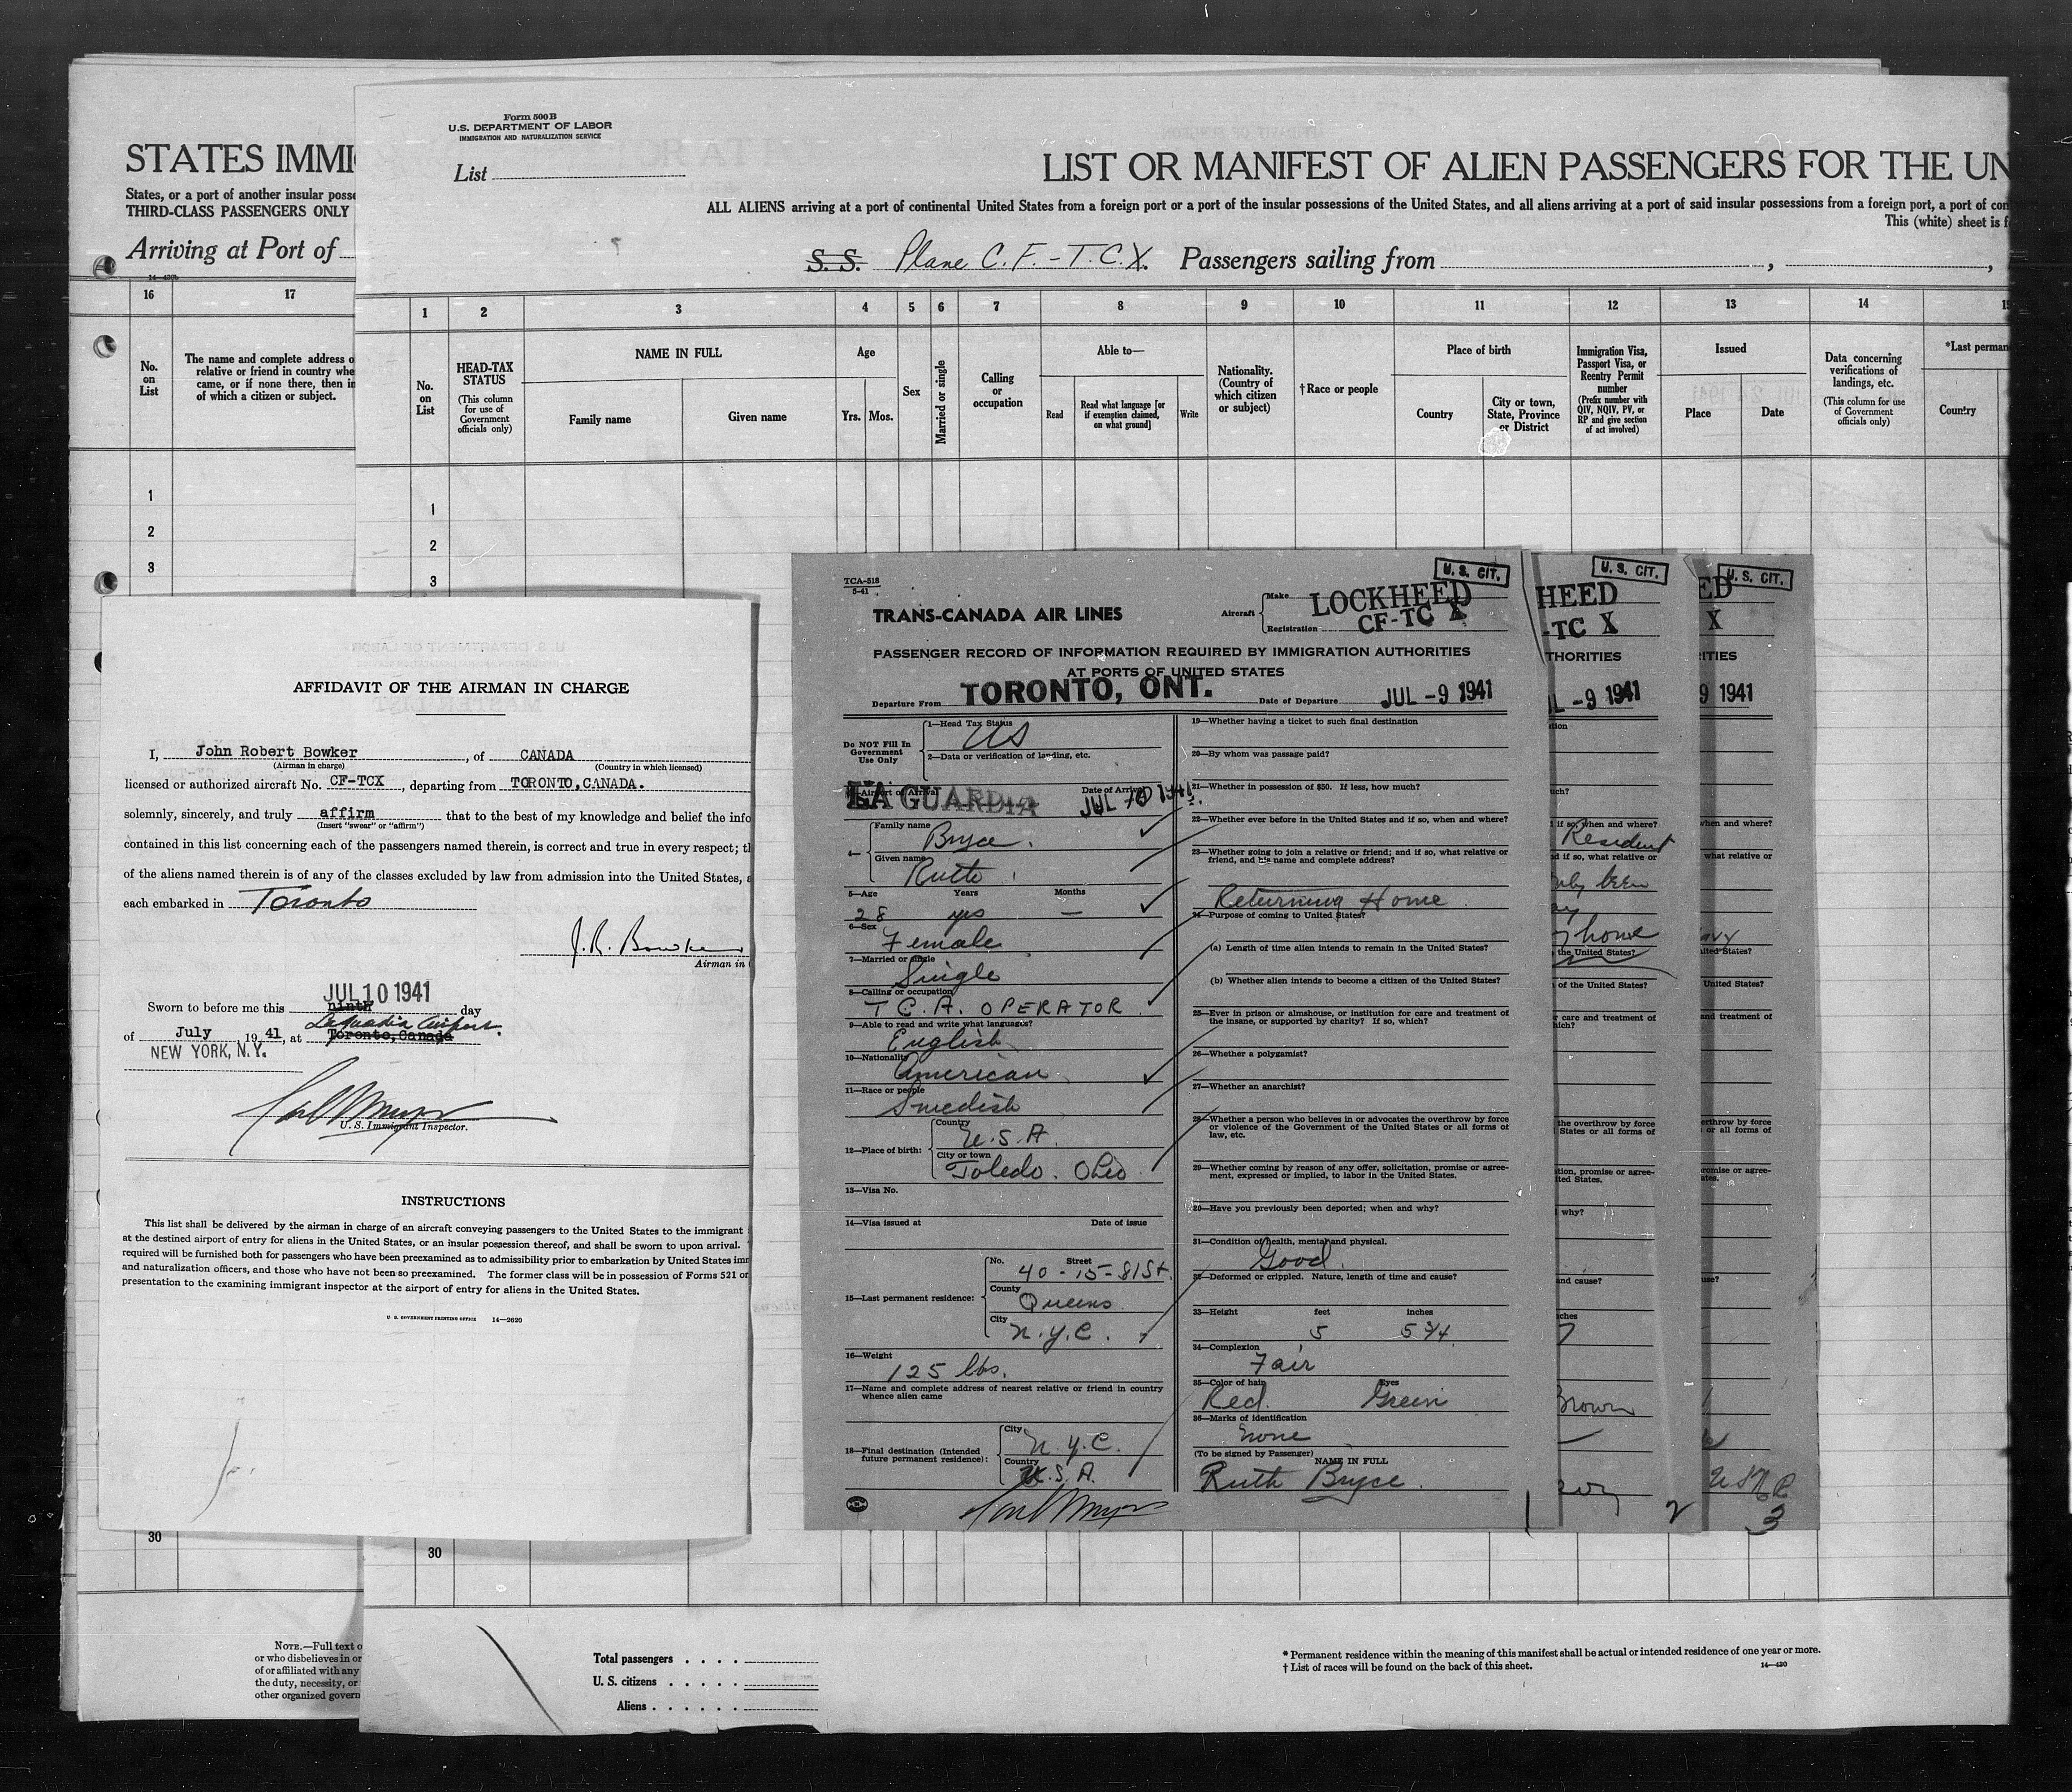 STATES IMMI
States, or a port of another insular posse
THIRD-CLASS PASSENGERS ONLY
Arriving at Port of
16 17
No. on List
The name and complete address o
relative or friend in country whe
came, or if none there, then in
of which a citizen or subject.
1
2
3
30
NOTE.—Full text o
or who disbelieves in or
of or affiliated with any
the duty, necessity, or
other organized govern
Form 500 B
U.S. DEPARTMENT OF LABOR
IMMIGRATION AND NATURALIZATION SERVICE
List
LIST OR MANIFEST OF ALIEN PASSENGERS FOR THE UN
ALL ALIENS arriving at a port of continental United States from a foreign port or a port of the insular possessions of the United States, and all aliens arriving at a port of said insular possessions from a foreign port, a port of con
This (white) sheet is f
S. S. Plane C.F.-T.C.X. Passengers sailing from
1 2 3 4 5 6 7 8 9 10 11 12 13 14 15
No. on List
HEAD-TAX STATUS
(This column for use of Government officials only)
NAME IN FULL
Family name Given name
Age
Yrs. Mos.
Sex
Married or single
Calling or occupation
Able to—
Read
Read what language [or if exemption claimed, on what ground]
Write
Nationality. (Country of which citizen or subject)
†Race or people
Place of birth
Country
City or town, State, Province or District
Immigration Visa, Passport Visa, or Reentry Permit number
(Prefix number with QIV, NQIV, PV, or RP and give section of act involved)
Issued
Place Date
Data concerning verifications of landings, etc.
(This column for use of Government officials only)
*Last perman
Country
1
2
3
30
AFFIDAVIT OF THE AIRMAN IN CHARGE
I, John Robert Bowker, of CANADA
(Airman in charge) (Country in which licensed)
licensed or authorized aircraft No. CF-TCX, departing from TORONTO, CANADA.
solemnly, sincerely, and truly affirm that to the best of my knowledge and belief the info
(Insert "swear" or "affirm")
contained in this list concerning each of the passengers named therein, is correct and true in every respect; th
of the aliens named therein is of any of the classes excluded by law from admission into the United States, a
each embarked in Toronto
J. R. Bowker
Airman in
JUL 10 1941
Sworn to before me this ninth day
LaGuardia Airport.
of July, 1941, at Toronto, Canada
NEW YORK, N.Y.
U. S. Immigrant Inspector.
INSTRUCTIONS
This list shall be delivered by the airman in charge of an aircraft conveying passengers to the United States to the immigrant
at the destined airport of entry for aliens in the United States, or an insular possession thereof, and shall be sworn to upon arrival.
required will be furnished both for passengers who have been preexamined as to admissibility prior to embarkation by United States imm
and naturalization officers, and those who have not been so preexamined. The former class will be in possession of Forms 521 or
presentation to the examining immigrant inspector at the airport of entry for aliens in the United States.
U. S. GOVERNMENT PRINTING OFFICE 14—2620
TCA-518
5-41
U. S. CIT.
TRANS-CANADA AIR LINES
Aircraft
Make LOCKHEED
Registration CF-TC X
PASSENGER RECORD OF INFORMATION REQUIRED BY IMMIGRATION AUTHORITIES
AT PORTS OF UNITED STATES
Departure From TORONTO, ONT. Date of Departure JUL -9 1941
Do NOT Fill In Government Use Only
1—Head Tax Status
US
2—Data or verification of landing, etc.
Airport of Arrival LA GUARDIA
Date of Arrival JUL 10 1941
4—
Family name Bryce.
Given name Ruth
5—Age Years Months
28 yrs —
6—Sex
Female
7—Married or single
Single
8—Calling or occupation
T.C.A. OPERATOR
9—Able to read and write what languages?
English
10—Nationality
American
11—Race or people
Swedish
12—Place of birth:
Country U.S.A.
City or town Toledo. Ohio
13—Visa No.
14—Visa issued at Date of issue
15—Last permanent residence:
No. Street 40-15-81 St.
County Queens
City N.Y.C.
16—Weight
125 lbs.
17—Name and complete address of nearest relative or friend in country
whence alien came
18—Final destination (Intended
future permanent residence):
City N.Y.C.
Country U.S.A.
19—Whether having a ticket to such final destination
20—By whom was passage paid?
21—Whether in possession of $50. If less, how much?
22—Whether ever before in the United States and if so, when and where?
23—Whether going to join a relative or friend; and if so, what relative or
friend, and his name and complete address?
Returning Home
24—Purpose of coming to United States?
(a) Length of time alien intends to remain in the United States?
(b) Whether alien intends to become a citizen of the United States?
25—Ever in prison or almshouse, or institution for care and treatment of
the insane, or supported by charity? If so, which?
26—Whether a polygamist?
27—Whether an anarchist?
28—Whether a person who believes in or advocates the overthrow by force
or violence of the Government of the United States or all forms of
law, etc.
29—Whether coming by reason of any offer, solicitation, promise or agree-
ment, expressed or implied, to labor in the United States.
30—Have you previously been deported; when and why?
31—Condition of health, mental and physical.
Good.
32—Deformed or crippled. Nature, length of time and cause?
33—Height feet inches
5 5 3/4
34—Complexion
Fair
35—Color of hair Eyes
Red. Green
36—Marks of identification
None
(To be signed by Passenger) NAME IN FULL
Ruth Bryce.
1
U. S. CIT.
HEED
-TC X
THORITIES
L -9 1941
if so, when and where?
Resident
d if so, what relative or
home
the United States?
of the United States?
r care and treatment of
the overthrow by force
States or all forms of
tion, promise or agree-
ited States.
why?
and cause?
7
Brown
—
2
U. S. CIT.
ED
X
RITIES
9 1941
when and where?
what relative or
United States?
and treatment of
erthrow by force
or all forms of
romise or agree-
ates.
USNR
3
Total passengers
U. S. citizens
Aliens
* Permanent residence within the meaning of this manifest shall be actual or intended residence of one year or more.
† List of races will be found on the back of this sheet.
14—430